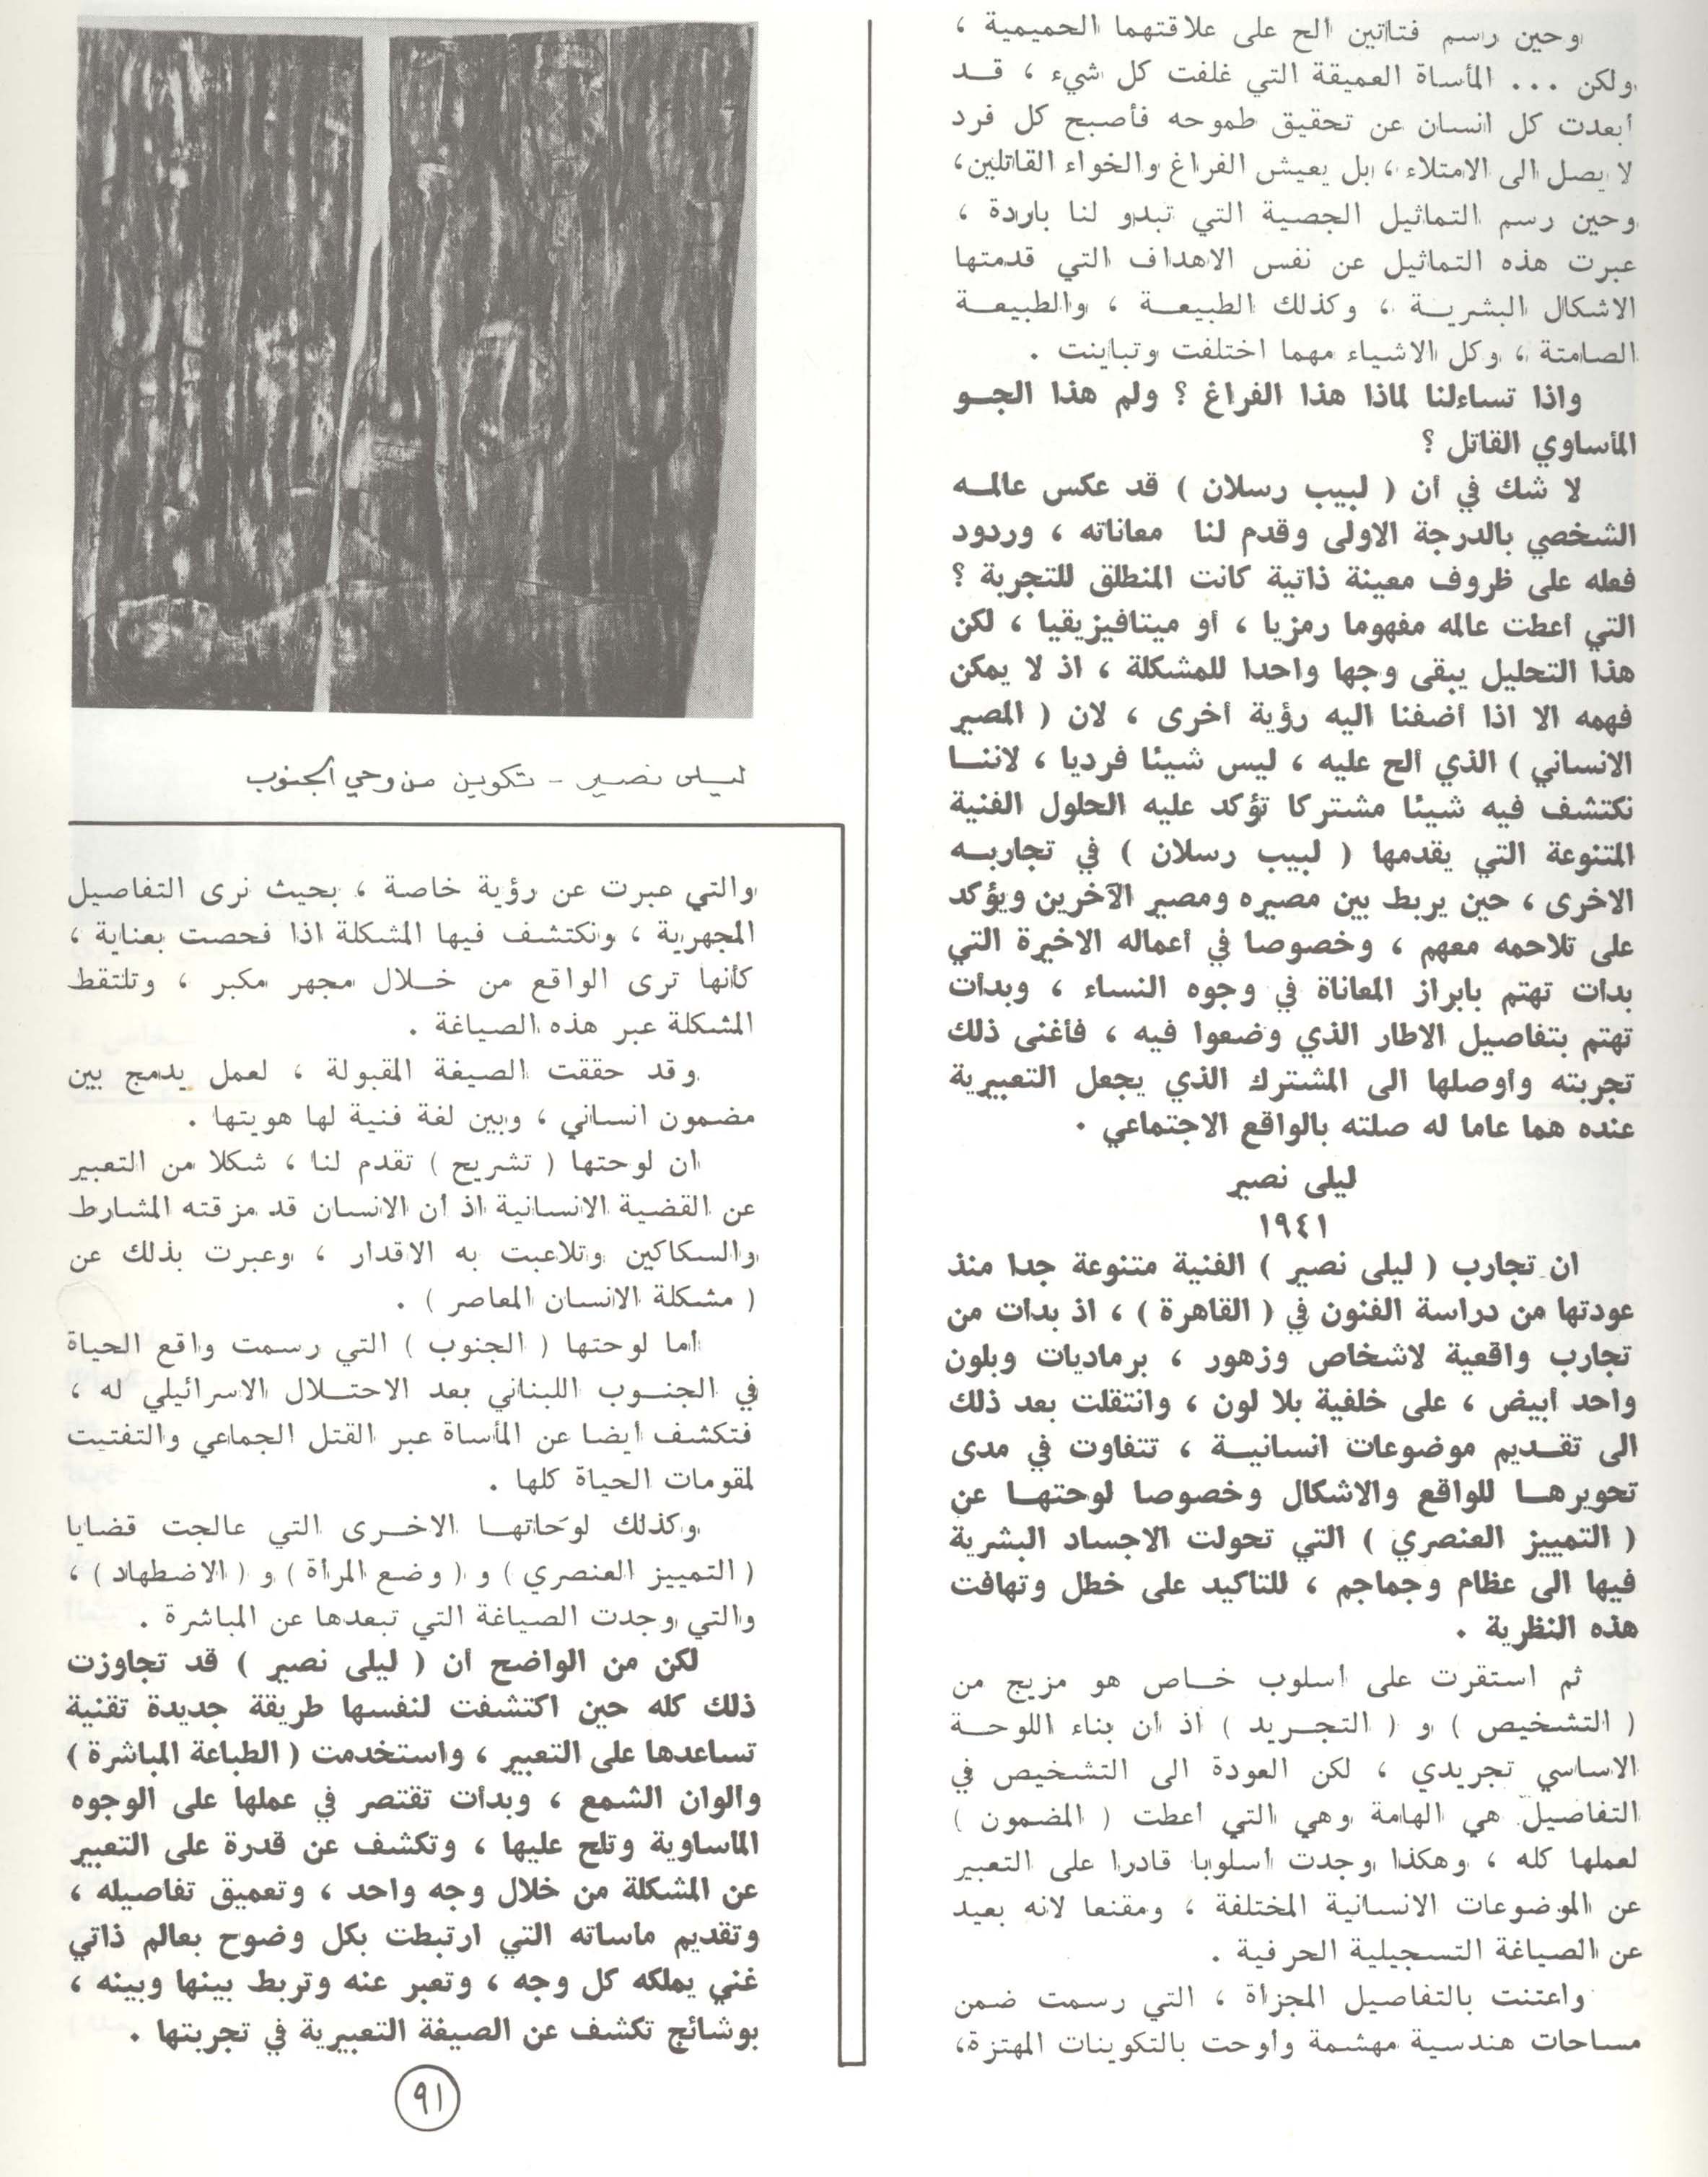 وحين رسم فتاتين الح على علاقتهما الحميمية ،
ولكن ... المأساة العميقة التي غلفت كل شيء ، قد
أبعدت كل انسان عن تحقيق طموحه فأصبح كل فرد
لا يصل الى الامتلاء ، بل يعيش الفراغ والخواء القاتلين،
وحين رسم التماثيل الجصية التي تبدو لنا باردة ،
عبرت هذه التماثيل عن نفس الاهداف التي قدمتها
الاشكال البشرية ، وكذلك الطبيعة ، والطبيعة
الصامتة ، وكل الاشياء مهما اختلفت وتباينت .
واذا تساءلنا لماذا هذا الفراغ ؟ ولم هذا الجو
المأساوي القاتل ؟
لا شك في أن ( لبيب رسلان ) قد عكس عالمه
الشخصي بالدرجة الاولى وقدم لنا معاناته ، وردود
فعله على ظروف معينة ذاتية كانت المنطلق للتجربة ؟
التي أعطت عالمه مفهوما رمزيا ، أو ميتافيزيقيا ، لكن
هذا التحليل يبقى وجها واحدا للمشكلة ، اذ لا يمكن
فهمه الا اذا أضفنا اليه رؤية أخرى ، لان ( المصير
الانساني ) الذي ألح عليه ، ليس شيئا فرديا ، لاننا
نكتشف فيه شيئا مشتركا تؤكد عليه الحلول الفنية
المتنوعة التي يقدمها ( لبيب رسلان ) في تجاربه
الاخرى ، حين يربط بين مصيره ومصير الآخرين ويؤكد
على تلاحمه معهم ، وخصوصا في أعماله الاخيرة التي
بدأت تهتم بابراز المعاناة في وجوه النساء ، وبدأت
تهتم بتفاصيل الاطار الذي وضعوا فيه ، فأغنى ذلك
تجربته وأوصلها الى المشترك الذي يجعل التعبيرية
عنده هما عاما له صلته بالواقع الاجتماعي .
ليلى نصير
١٩٤١
ان تجارب ( ليلى نصير ) الفنية متنوعة جدا منذ
عودتها من دراسة الفنون في ( القاهرة ) ، اذ بدأت من
تجارب واقعية لاشخاص وزهور ، برماديات وبلون
واحد أبيض ، على خلفية بلا لون ، وانتقلت بعد ذلك
الى تقديم موضوعات انسانية ، تتفاوت في مدى
تحويرها للواقع والاشكال وخصوصا لوحتها عن
( التمييز العنصري ) التي تحولت الاجساد البشرية
فيها الى عظام وجماجم ، للتاكيد على خطل وتهافت
هذه النظرية .
ثم استقرت على اسلوب خاص هو مزيج من
( التشخيص ) و ( التجريد ) اذ أن بناء اللوحة
الاساسي تجريدي ، لكن العودة الى التشخيص في
التفاصيل هي الهامة وهي التي أعطت ( المضمون )
لعملها كله ، وهكذا وجدت اسلوبا قادرا على التعبير
عن الموضوعات الانسانية المختلفة ، ومقنعا لانه بعيد
عن الصياغة التسجيلية الحرفية .
واعتنت بالتفاصيل المجزأة ، التي رسمت ضمن
مساحات هندسية مهشمة وأوحت بالتكوينات المهتزة،
ليلى نصير - تكوين من وحي الجنوب
والتي عبرت عن رؤية خاصة ، بحيث نرى التفاصيل
المجهرية ، ونكتشف فيها المشكلة اذا فحصت بعناية ،
كأنها ترى الواقع من خلال مجهر مكبر ، وتلتقط
المشكلة عبر هذه الصياغة .
وقد حققت الصيغة المقبولة ، لعمل يدمج بين
مضمون انساني ، وبين لغة فنية لها هويتها .
ان لوحتها ( تشريح ) تقدم لنا ، شكلا من التعبير
عن القضية الانسانية اذ أن الانسان قد مزقته المشارط
والسكاكين وتلاعبت به الاقدار ، وعبرت بذلك عن
( مشكلة الانسان المعاصر ) .
أما لوحتها ( الجنوب ) التي رسمت واقع الحياة
في الجنوب اللبناني بعد الاحتلال الاسرائيلي له ،
فتكشف أيضا عن المأساة عبر القتل الجماعي والتفتيت
لمقومات الحياة كلها .
وكذلك لوحاتها الاخرى التي عالجت قضايا
( التمييز العنصري ) و ( وضع المرأة ) و ( الاضطهاد ) ،
والتي وجدت الصياغة التي تبعدها عن المباشرة .
لكن من الواضح أن ( ليلى نصير ) قد تجاوزت
ذلك كله حين اكتشفت لنفسها طريقة جديدة تقنية
تساعدها على التعبير ، واستخدمت ( الطباعة المباشرة )
والوان الشمع ، وبدأت تقتصر في عملها على الوجوه
المأساوية وتلح عليها ، وتكشف عن قدرة على التعبير
عن المشكلة من خلال وجه واحد ، وتعميق تفاصيله ،
وتقديم ماساته التي ارتبطت بكل وضوح بعالم ذاتي
غني يملكه كل وجه ، وتعبر عنه وتربط بينها وبينه ،
بوشائج تكشف عن الصيغة التعبيرية في تجربتها .
٩١